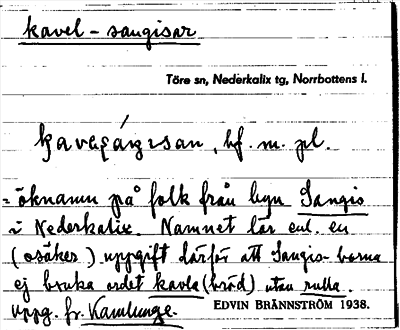 kavel-sangisar
Töre sn, Nederkalix tg, Norrbottens l.
bf. m. pl.
= öknamn på folk från byn Sangis
i Nederkalix. Namnet lär enl. en
(osäker) uppgift därför att Sangis-borna
ej bruka ordet kavla (bröd) utan rulla.
Uppg. fr. Kamlunge. EDVIN BRÄNNSTRÖM 1938.